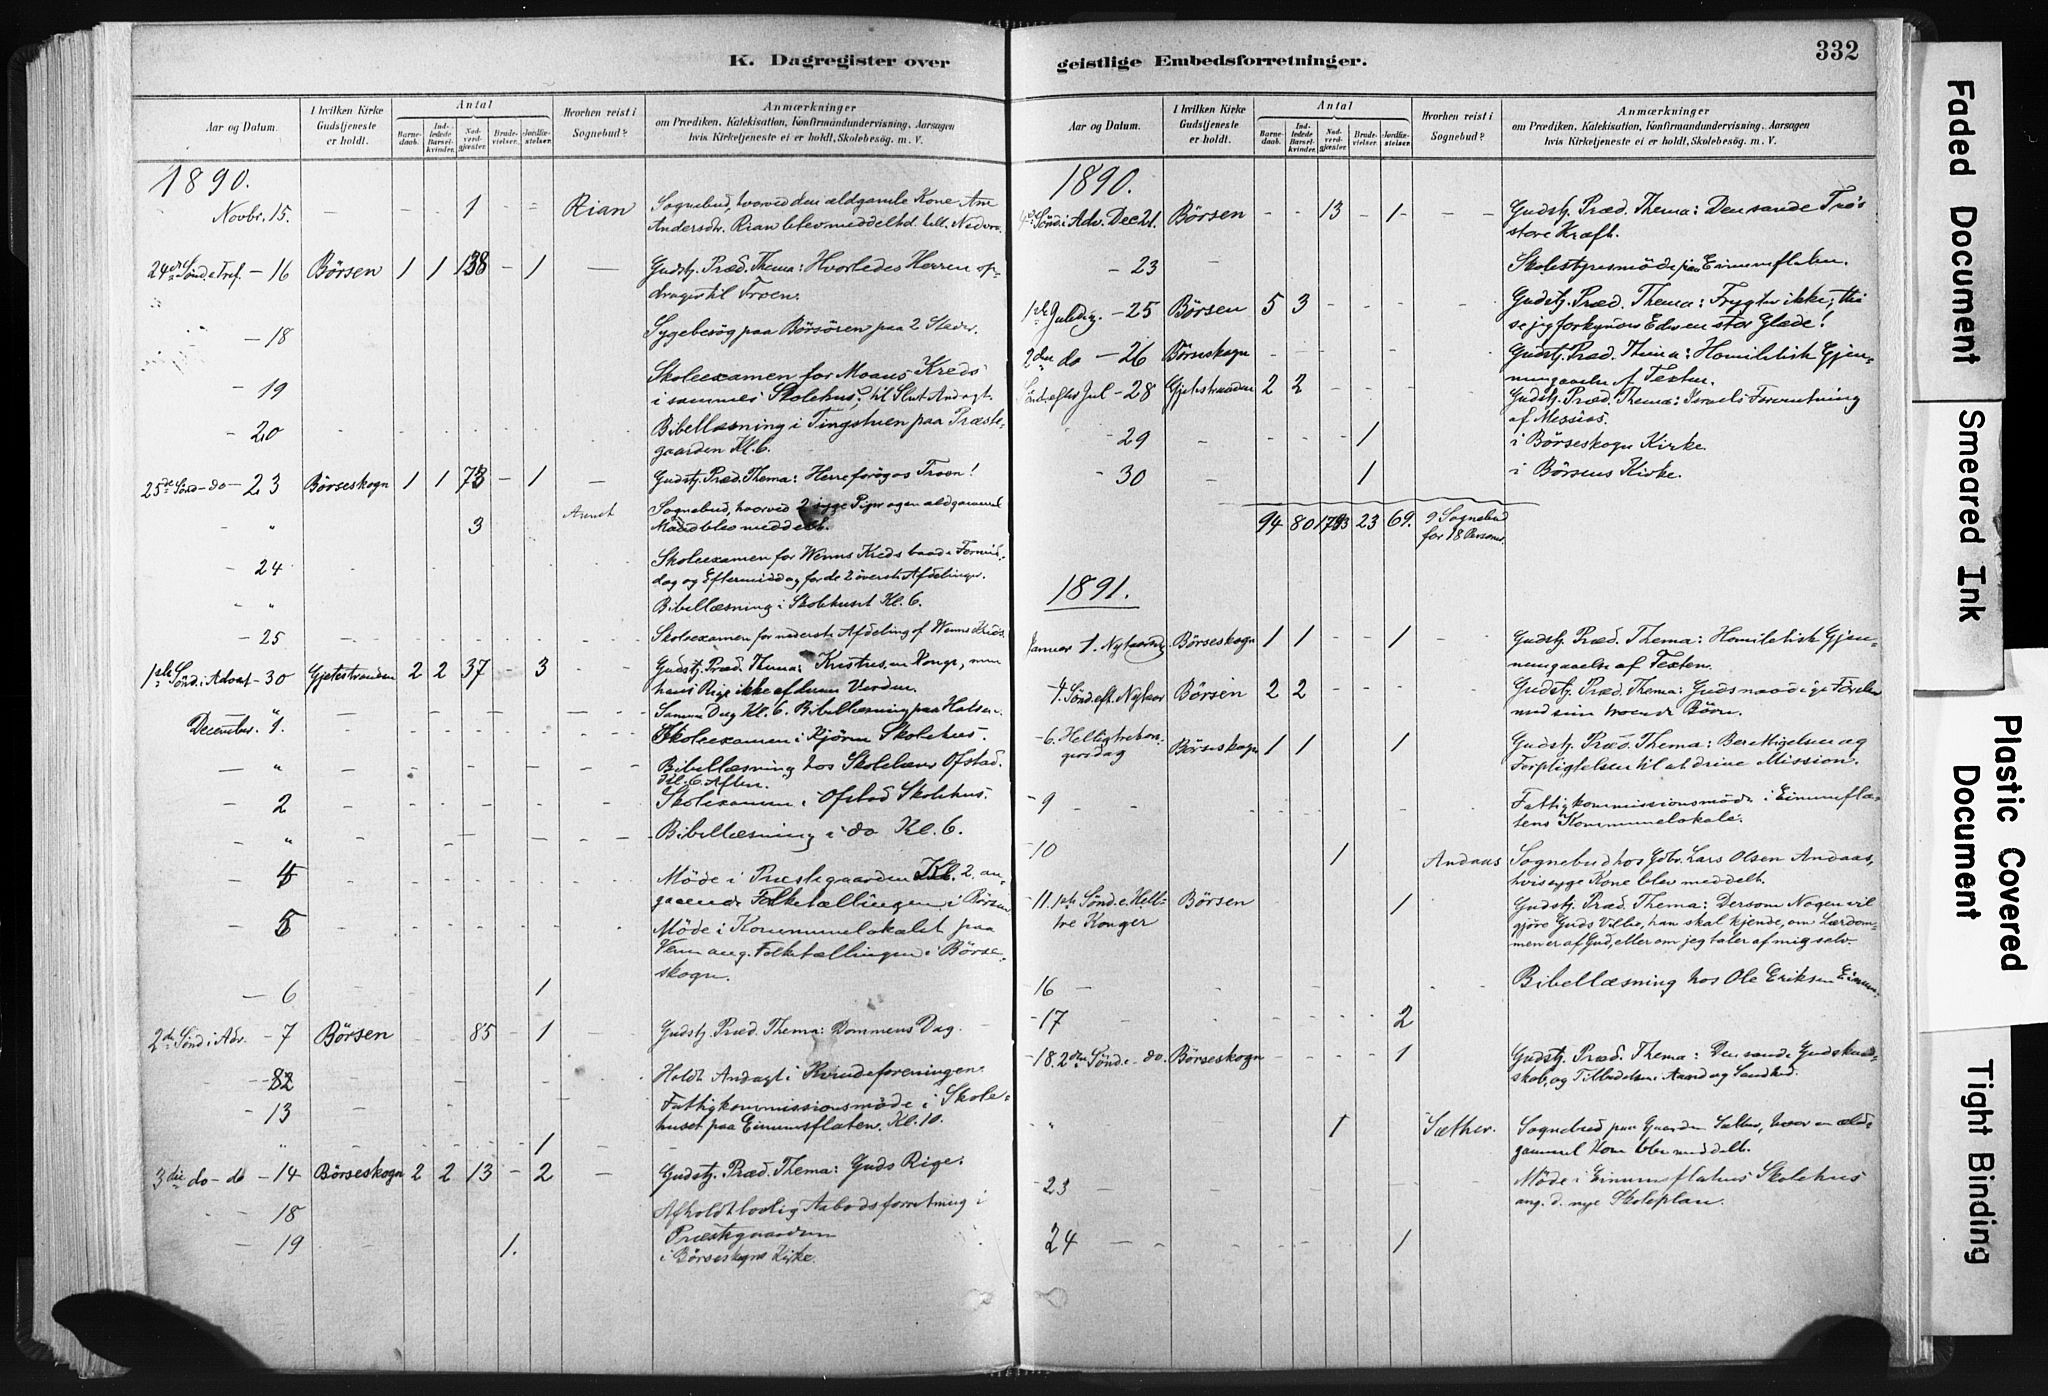 K. Dagregister over
Aar og Datum.
I hvilken Kirke Gudstjeneste er holdt.
Antal
Barne-daab.
Ind-ledede Barsel-kvinder.
Nad-verd-gjæster.
Brude-vielser.
Jordfæ-stelser.
Hvorhen reist i Sognebud?
Anmærkninger
om Prædiken, Katekisation, Konfirmandundervisning, Aarsagen
hvis Kirketjeneste ei er holdt, Skolebesøg. m. V.
1890.
Novbr. 15. - - 1 - - Rian Sognebud, hvorved den ældgamle Kone Ane
Andersdtr. Rian blev meddelt d. hell. Nadver.
24de Sönd. e Tref. - 16 Börsen 1 1 138 - 1 - Gudstj. Præd. Thema: Hvorledes Herren op-
drager til Troen.
- 18 Sygebesög paa Börsören paa 2 Steder.
- 19 Skoleexamen for Moans Kreds
i sammes Skolehus; til Slut Andagt.
- 20 Bibellæsning i Tingstuen paa Præste-
gaarden Kl. 6.
25de Sönd - do - 23 Börseskogn 1 1 73 - 1 - Gudstj. Præd. Thema: Herre forög os Troen!
- " 3 Sognebud, hvorved 2 syge Piger og en ældgammel
Mand blev meddelt.
- 24 Skoleexamen for Wenns Kreds baade Formid-
dag og Eftermiddag for de 2 överste Afdelinger.
- " Bibellæsning i Skolehuset Kl. 6.
- 25 Skoleexamen for nederste Afdeling af Wenns Kreds.
1ste Sönd. i Advent - 30 Gjetestranden 2 2 37 - 3 Gudstj. Præd. Thema: Kristus en Konge, men
hans Rige ikke af denne Verden.
" Samme Dag Kl. 6. Bibellæsning paa Halsen.
December 1. Skoleexamen i Kjörem Skolehus.
- " Bibellæsning hos Skolelærer Ofstad.
Kl. 6 Aften.
- 2 Skolexamen i Ofstad Skolehus.
- " Bibellæsning i do Kl. 6.
- 4 Möde i Præstegaarden Kl. 2. an-
gaaende Folketællingen i Börsen.
- 5 Möde i Kommunelokalet paa
Venn ang. Folketællingen i Börse-
skogn.
- 6 1
2den Sönd i Adv. - 7 Börsen 85 - 1 - Gudstj. Præd. Thema: Dommens Dag.
- 12 Holdt Andagt i Kvindeforeningen.
- 13 Fattigkommissionsmöde i Skole-
huset paa Eimumsflaten. Kl. 10.
- " 1
3die do - do - 14 Börseskogn 2 2 13 - 2 - Gudstj. Præd. Thema: Guds Rige.
- 18 Afholdt lovlig Aabodsforretning i
Præstegaarden
- 19 1. i Börseskogns Kirke.
geistlige Embedsforretninger.
332
Aar og Datum.
I hvilken Kirke Gudstjeneste er holdt.
Antal
Barne-daab.
Ind-ledede Barsel-kvinder.
Nad-verd-gjæster.
Brude-vielser.
Jordfæ-stelser.
Hvorhen reist i Sognebud?
Anmærkninger
om Prædiken, Katekisation, Konfirmandundervisning, Aarsagen
hvis Kirketjeneste ei er holdt, Skolebesøg. m. V.
1890.
4de Sönd. i Adv. Dec 21. Börsen - - 13 - 1 - - Gudstj. Præd. Thema: Den sande Tro's
store Kraft.
- 23 - Skolestyresmöde paa Eimumsflaten.
1ste Juledag. - 25 Börsen 5 3 Gudstj. Præd. Thema: Frygter ikke; thi
se jeg forkynder Eder en stor Glæde!
2den do - 26 Börseskogn Gudstj. Præd. Thema: Homiletisk Gjen-
nemgaaelse af Texten.
Sönd. efter Jul - 28 Gjetestranden 2 2 Gudstj. Præd. Thema: Israels Forventning
af Messias.
- 29 1 i Börseskogns Kirke.
- 30 1 i Börsens Kirke.
94 80 23 69. 9 Sognebud
for 18 Personer.
1891.
Januar 1. Nytaarsdag Börseskogn 1 1 1 Gudstj. Præd. Thema: Homiletisk Gjen-
nemgaaelse af Texten.
4. Sönd. eft. Nytaar Börsen 2 2 Gudstj. Præd. Thema: Guds naadige Förelse
med sine troende Börn.
- 6. Helligtrekon-
gersdag Börseskogn 1 1 1 Gudstj. Præd. Thema: Berettigelsen og
Forpligtelsen til at drive Mission.
- 9 Fattigkommissionsmöde i Eimumsfla-
tens Kommunelokale.
- 10 1 Andaas Sognebud hos Gdbr. Lars Olsen Andaas,
hvis syge Kone blev meddelt.
- 11. 1ste Sönd. e. Hell-
tre Konger Börsen 1 Gudstj. Præd. Thema: Dersom Nogen vil
gjöre Guds Villie, han skal kjende, om Lærdom-
men er af Gud, eller om jeg taler af mig selv.
- 16 Bibellæsning hos Ole Eriksen
- 17 2
- 18. 2den Sönd. e. do. Börseskogn 1 Gudstj. Præd. Thema: Den sande Gudskund-
skab, og Tilbedelse i Aand og Sandhed.
" 1 Sæther. Sognebud paa Gaarden Sæther, hvor en æld-
gammel Kone blev meddelt.
- 23 Möde i Eimumsflatens Skolehus
ang. d. nye Skoleplan.
24 1
Faded Document
Smeared Ink
Plastic Covered Document
Tight Binding